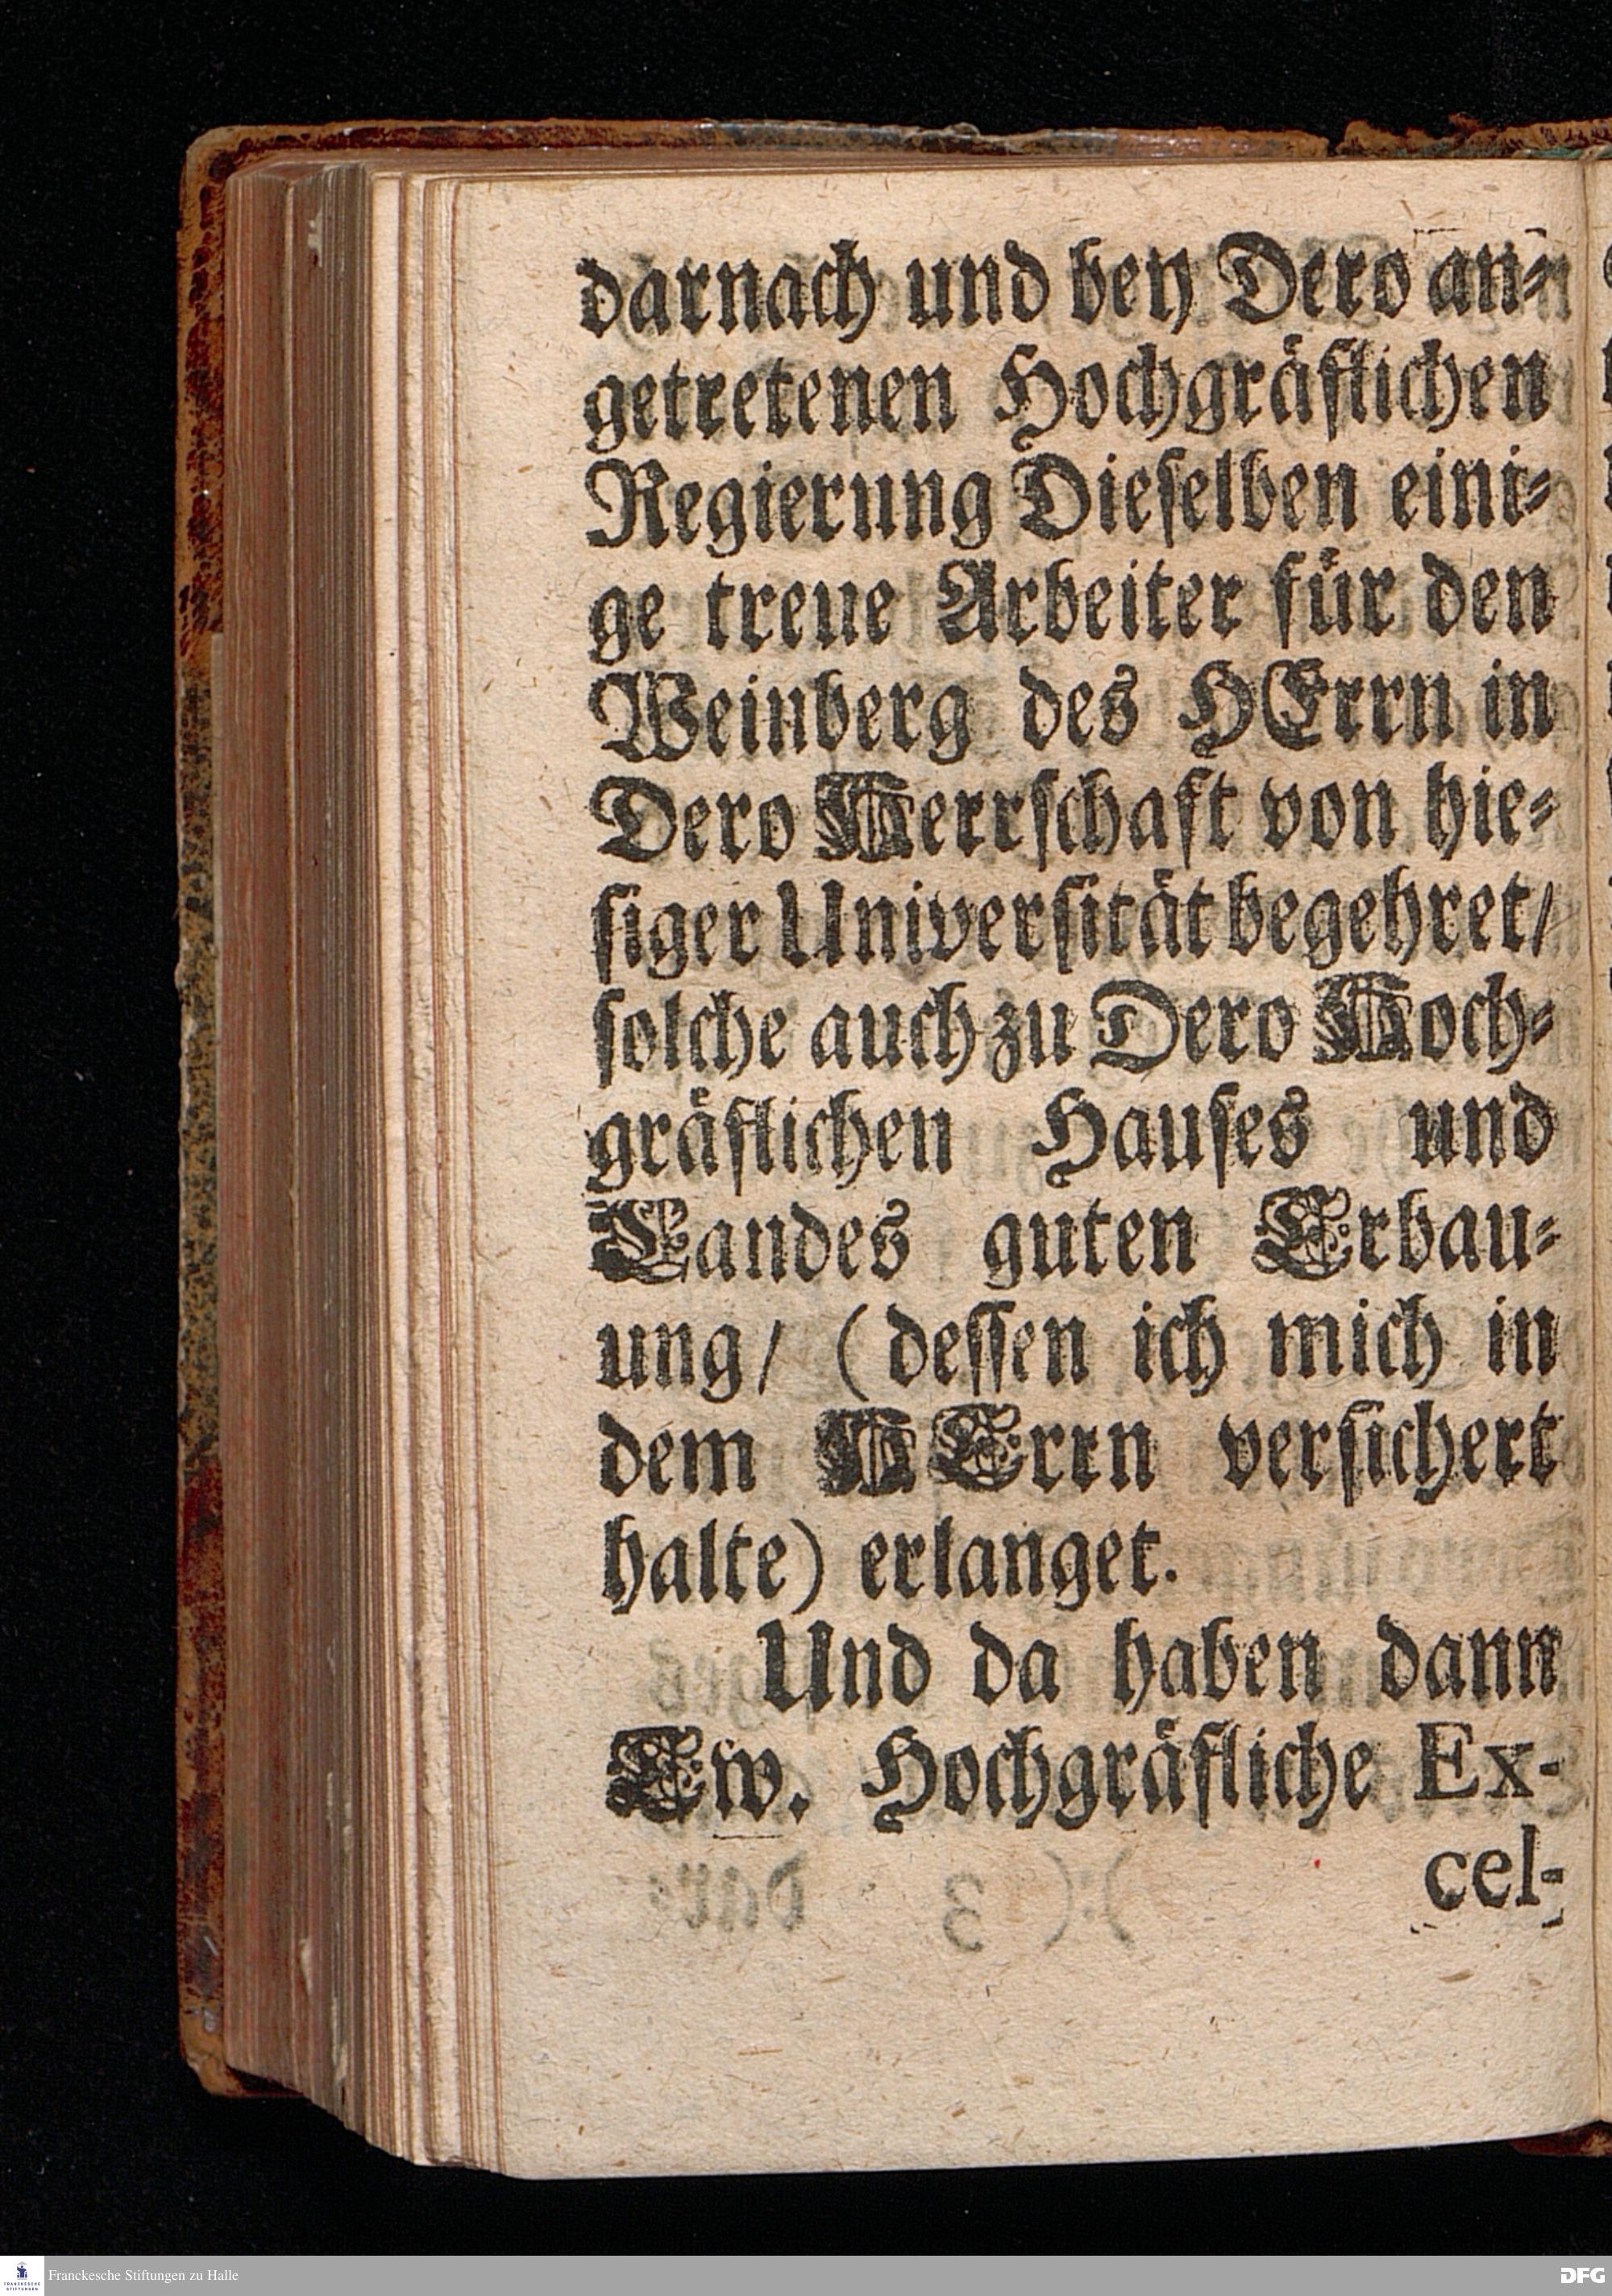 darnach und bey Dero an-
getretenen Hochgräflichen
Regierung Dieselben eini-
ge treue Arbeiter für den
Weinberg des HErrn in
Dero Herrschaft von hie-
siger Universität begehret/
solche auch zu Dero Hoch-
gräflichen Hauses und
Landes guten Erbau-
ung/ (dessen ich mich in
dem HErrn versichert
halte) erlanget.
Und da haben dann
Ew. Hochgräfliche Ex-
cel-
FRANCKESCHE
STIFTUNGEN
Franckesche Stiftungen zu Halle
DFG